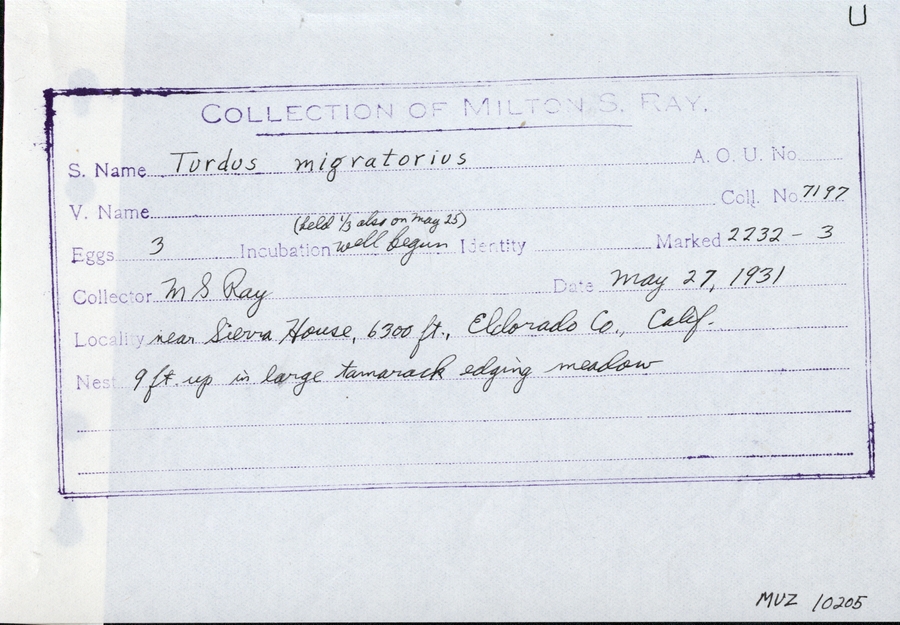 U
COLLECTION OF MILTON S. RAY.
S. Name Turdus migratorius A. O. U. No.
V. Name Coll. No. 7197
(held 1/3 also on May 25)
Eggs 3 Incubation well begun Identity Marked 2232 - 3
Collector M S Ray Date May 27, 1931
Locality near Sierra House, 6300 ft., Eldorado Co., Calif.
Nest 9 ft. up in large tamarack edging meadow
MVZ 10205